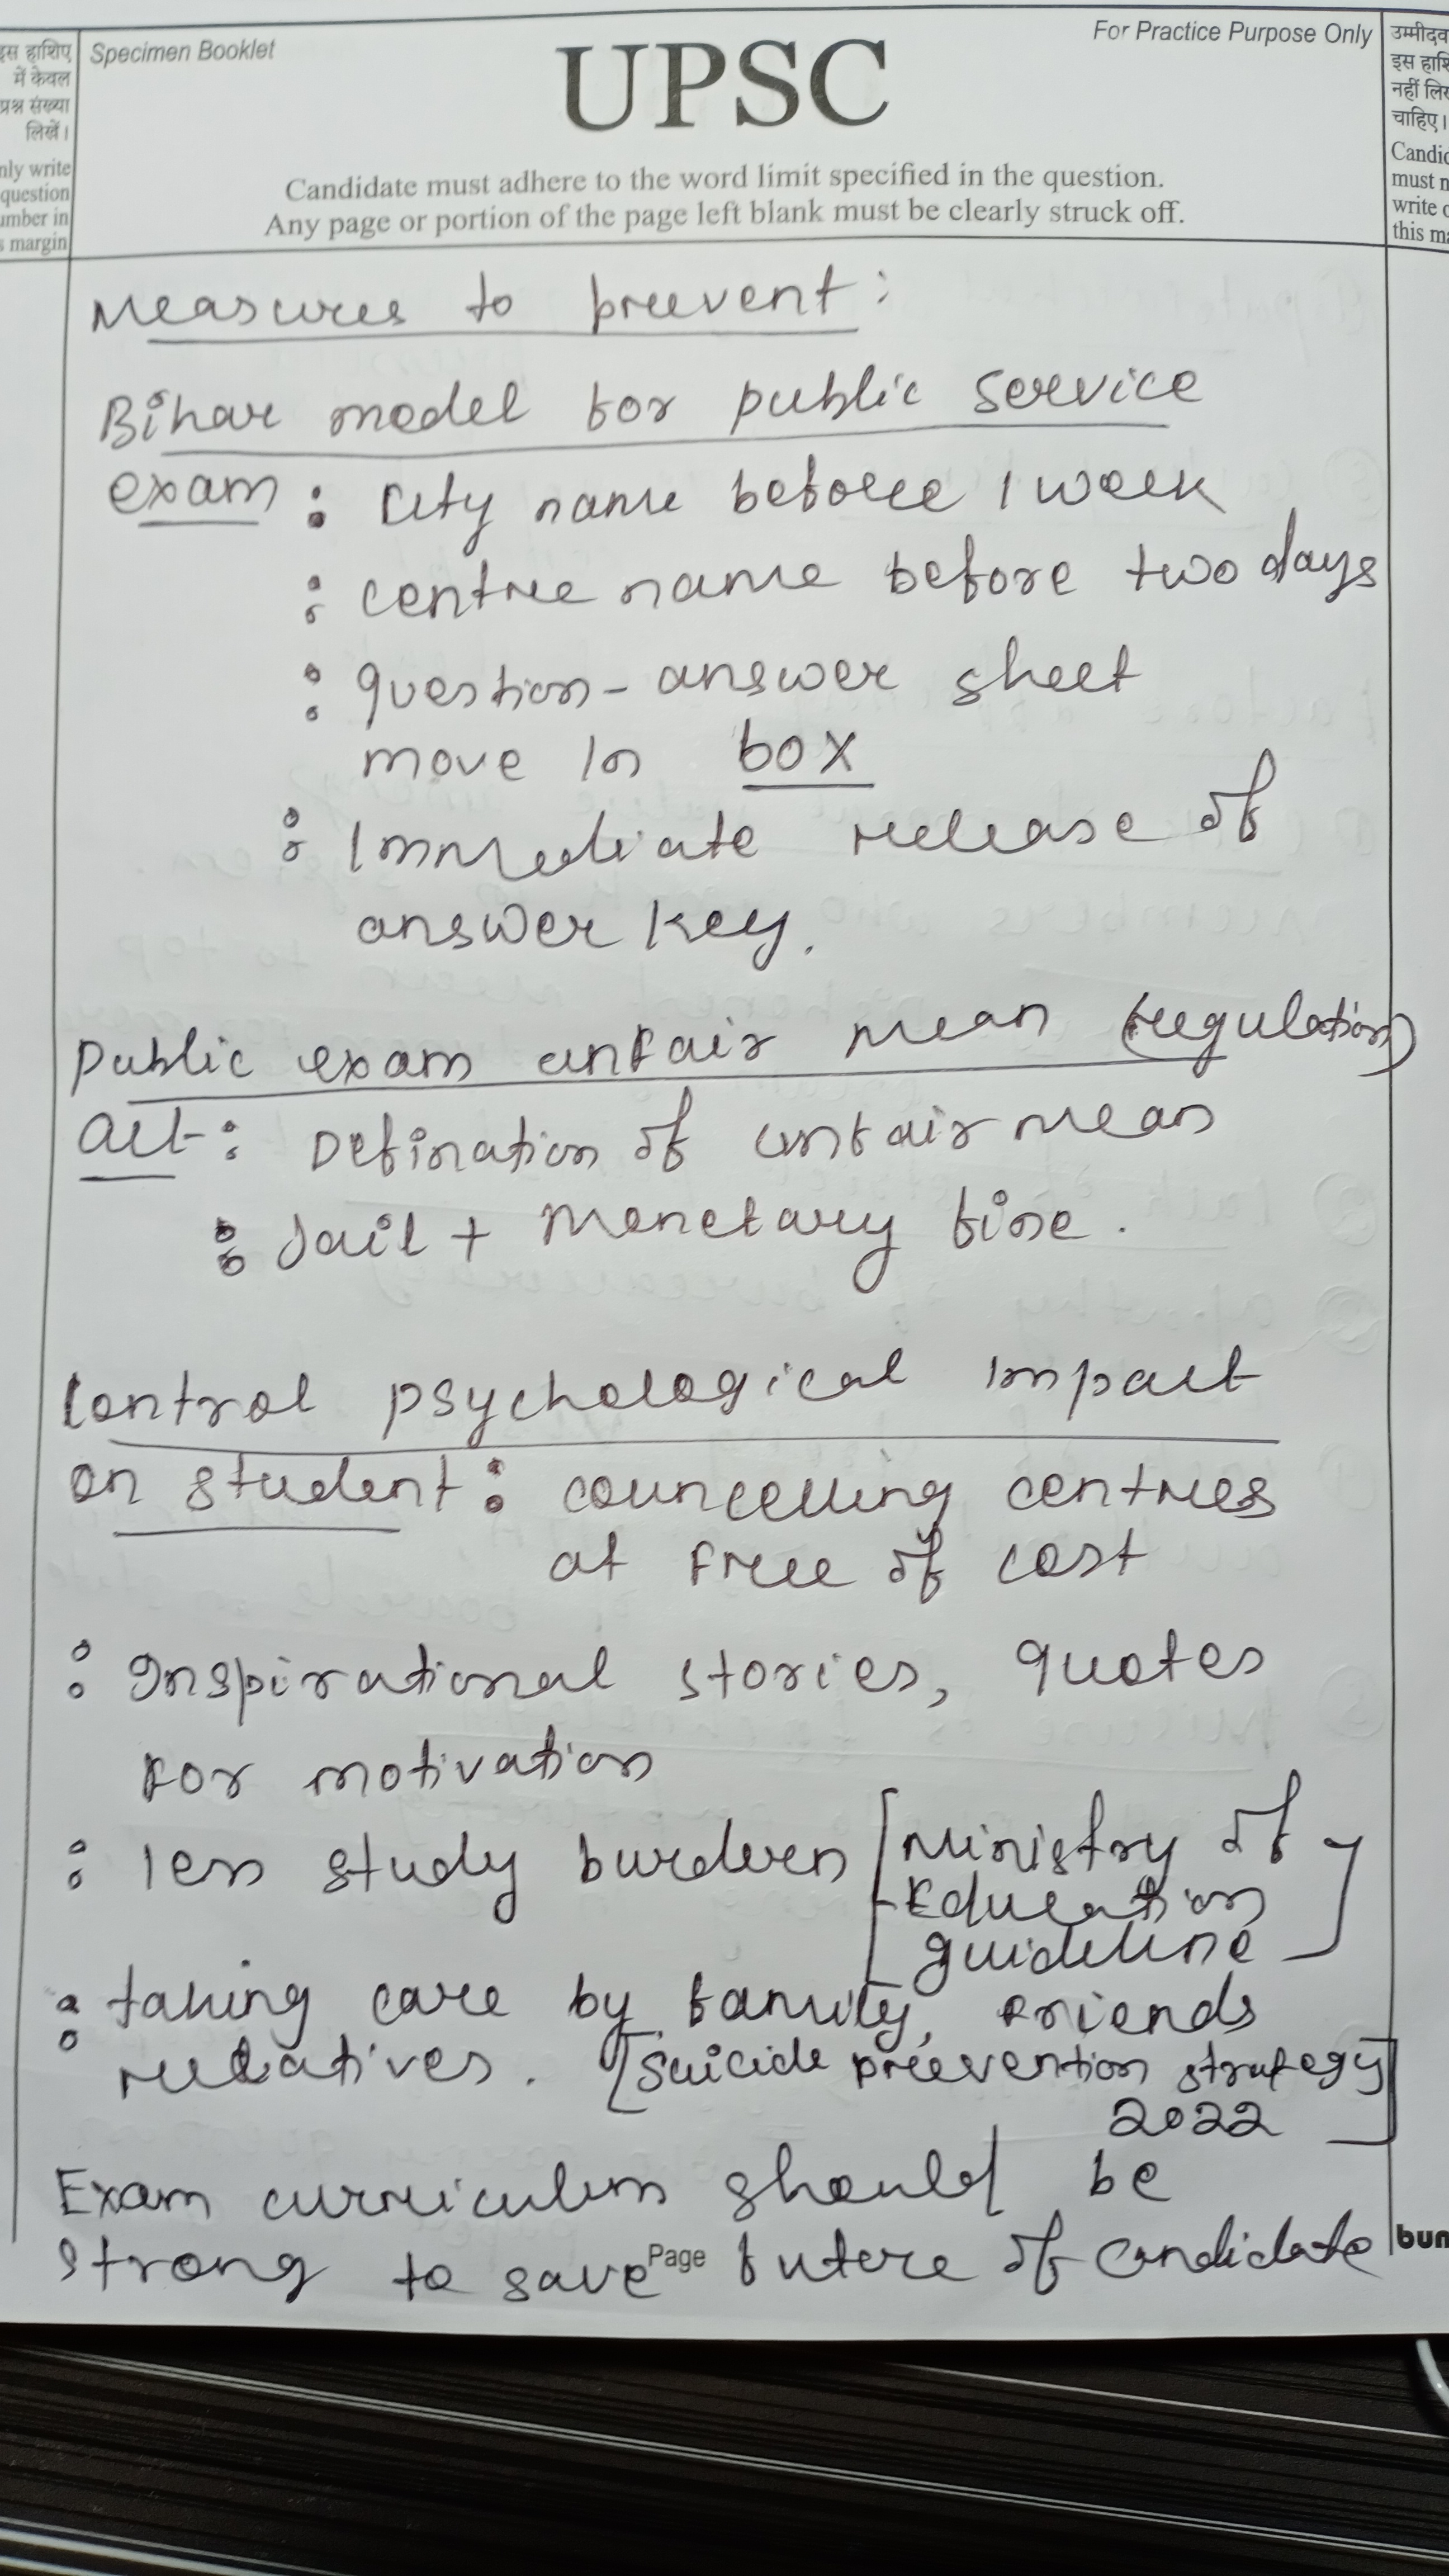 इस हाशिए
में केवल
प्रश्न संख्या
लिखें।
nly write
question
umber in
s margin
Specimen Booklet
UPSC
For Practice Purpose Only
Candidate must adhere to the word limit specified in the question.
Any page or portion of the page left blank must be clearly struck off.
उम्मीदव
इस हाशि
नहीं लिख
चाहिए।
Candid
must n
write o
this ma
Measures to prevent :
Bihar model for public service
exam : City name before 1 week
: centre name before two days
: question - answer sheet
move in box
: Immediate release of
answer key.
Public exam unfair mean (regulation)
act : Defination of unfair mean
: Jail + Monetary fine .
Control psychological impact
on student : councelling centres
at free of cost
: Inspirational stories, quotes
for motivation
: less study burden [Ministry of
Education
guideline]
: taking care by family, friends
relatives . [Suicide prevention strategy
2022]
Exam curriculum should be
strong to save future of candidate
Page
bun